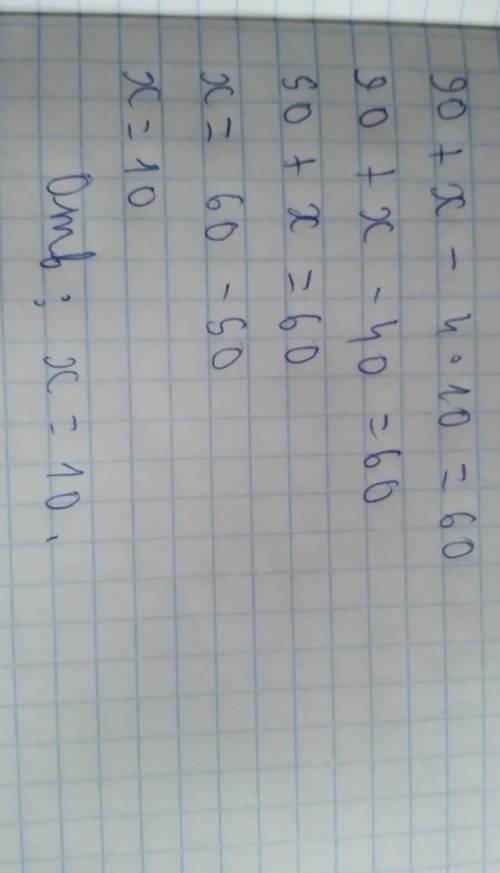 90 + x - 4 · 10 = 60
90 + x - 40 = 60
50 + x = 60
x = 60 - 50
x = 10
Отв; x = 10.